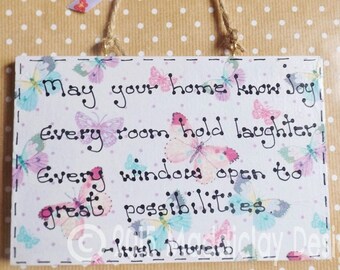 May your home know joy
Every room hold laughter
Every window open to
great possibilities
~Irish Proverb